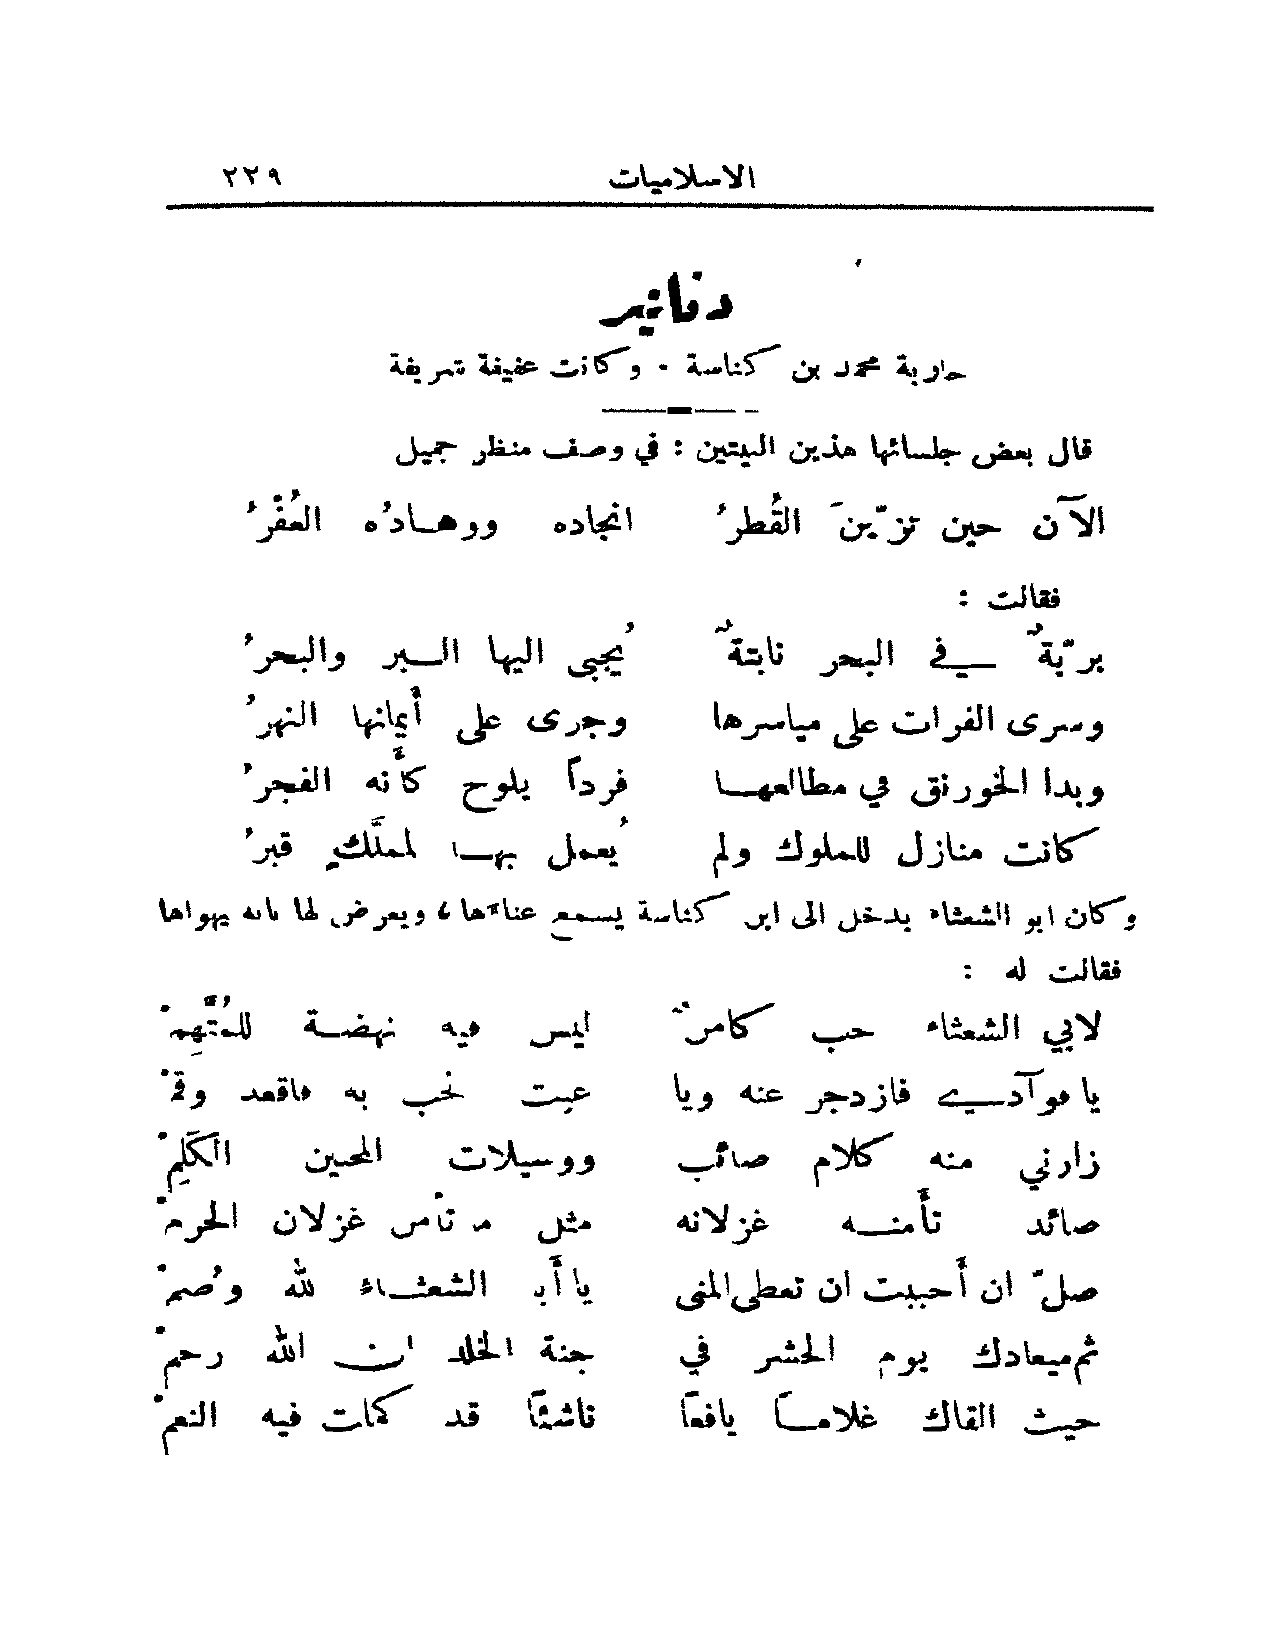 الاسلاميات ٢٢٩
دنانير
جارية محمد بن كناسة . وكانت عفيفة شريفة
قال بعض جلسائها هذين البيتين : في وصف منظر جميل
الآن حين تزيّنَ القُطرُ انجاده ووهادُه العُفْرُ
فقالت :
بريّةٌ في البحر نابتةٌ يُجبى اليها البر والبحرُ
وسرى الفرات على مياسرها وجرى على أيمانها النهرُ
وبدا الخورنق في مطالعها فرداً يلوح كأنه الفجرُ
كانت منازل للملوك ولم يُعمل بها لمملَّكٍ قبرُ
وكان ابو الشعثاء يدخل الى ابن كناسة يسمع عناءها ، ويعرض لها بانه يهواها
فقالت له :
لابي الشعثاء حب كامنٌ ليس فيه نهضة للمُتَّهِمْ
يا فوآدي فازدجر عنه ويا عبث الحب به فاقعد وقمْ
زارني منه كلام صائب ووسيلات المحبين الكَلِمْ
صائد تأمنه غزلانه مثل ما تأمن غزلان الحرمْ
صلّ ان أحببت ان تعطى المنى يا أبا الشعثاء لله وصُمْ
ثم ميعادك يوم الحشر في جنة الخلد ان الله رحمْ
حيث القاك غلاماً يافعاً ناشئاً قد كملت فيه النعمْ